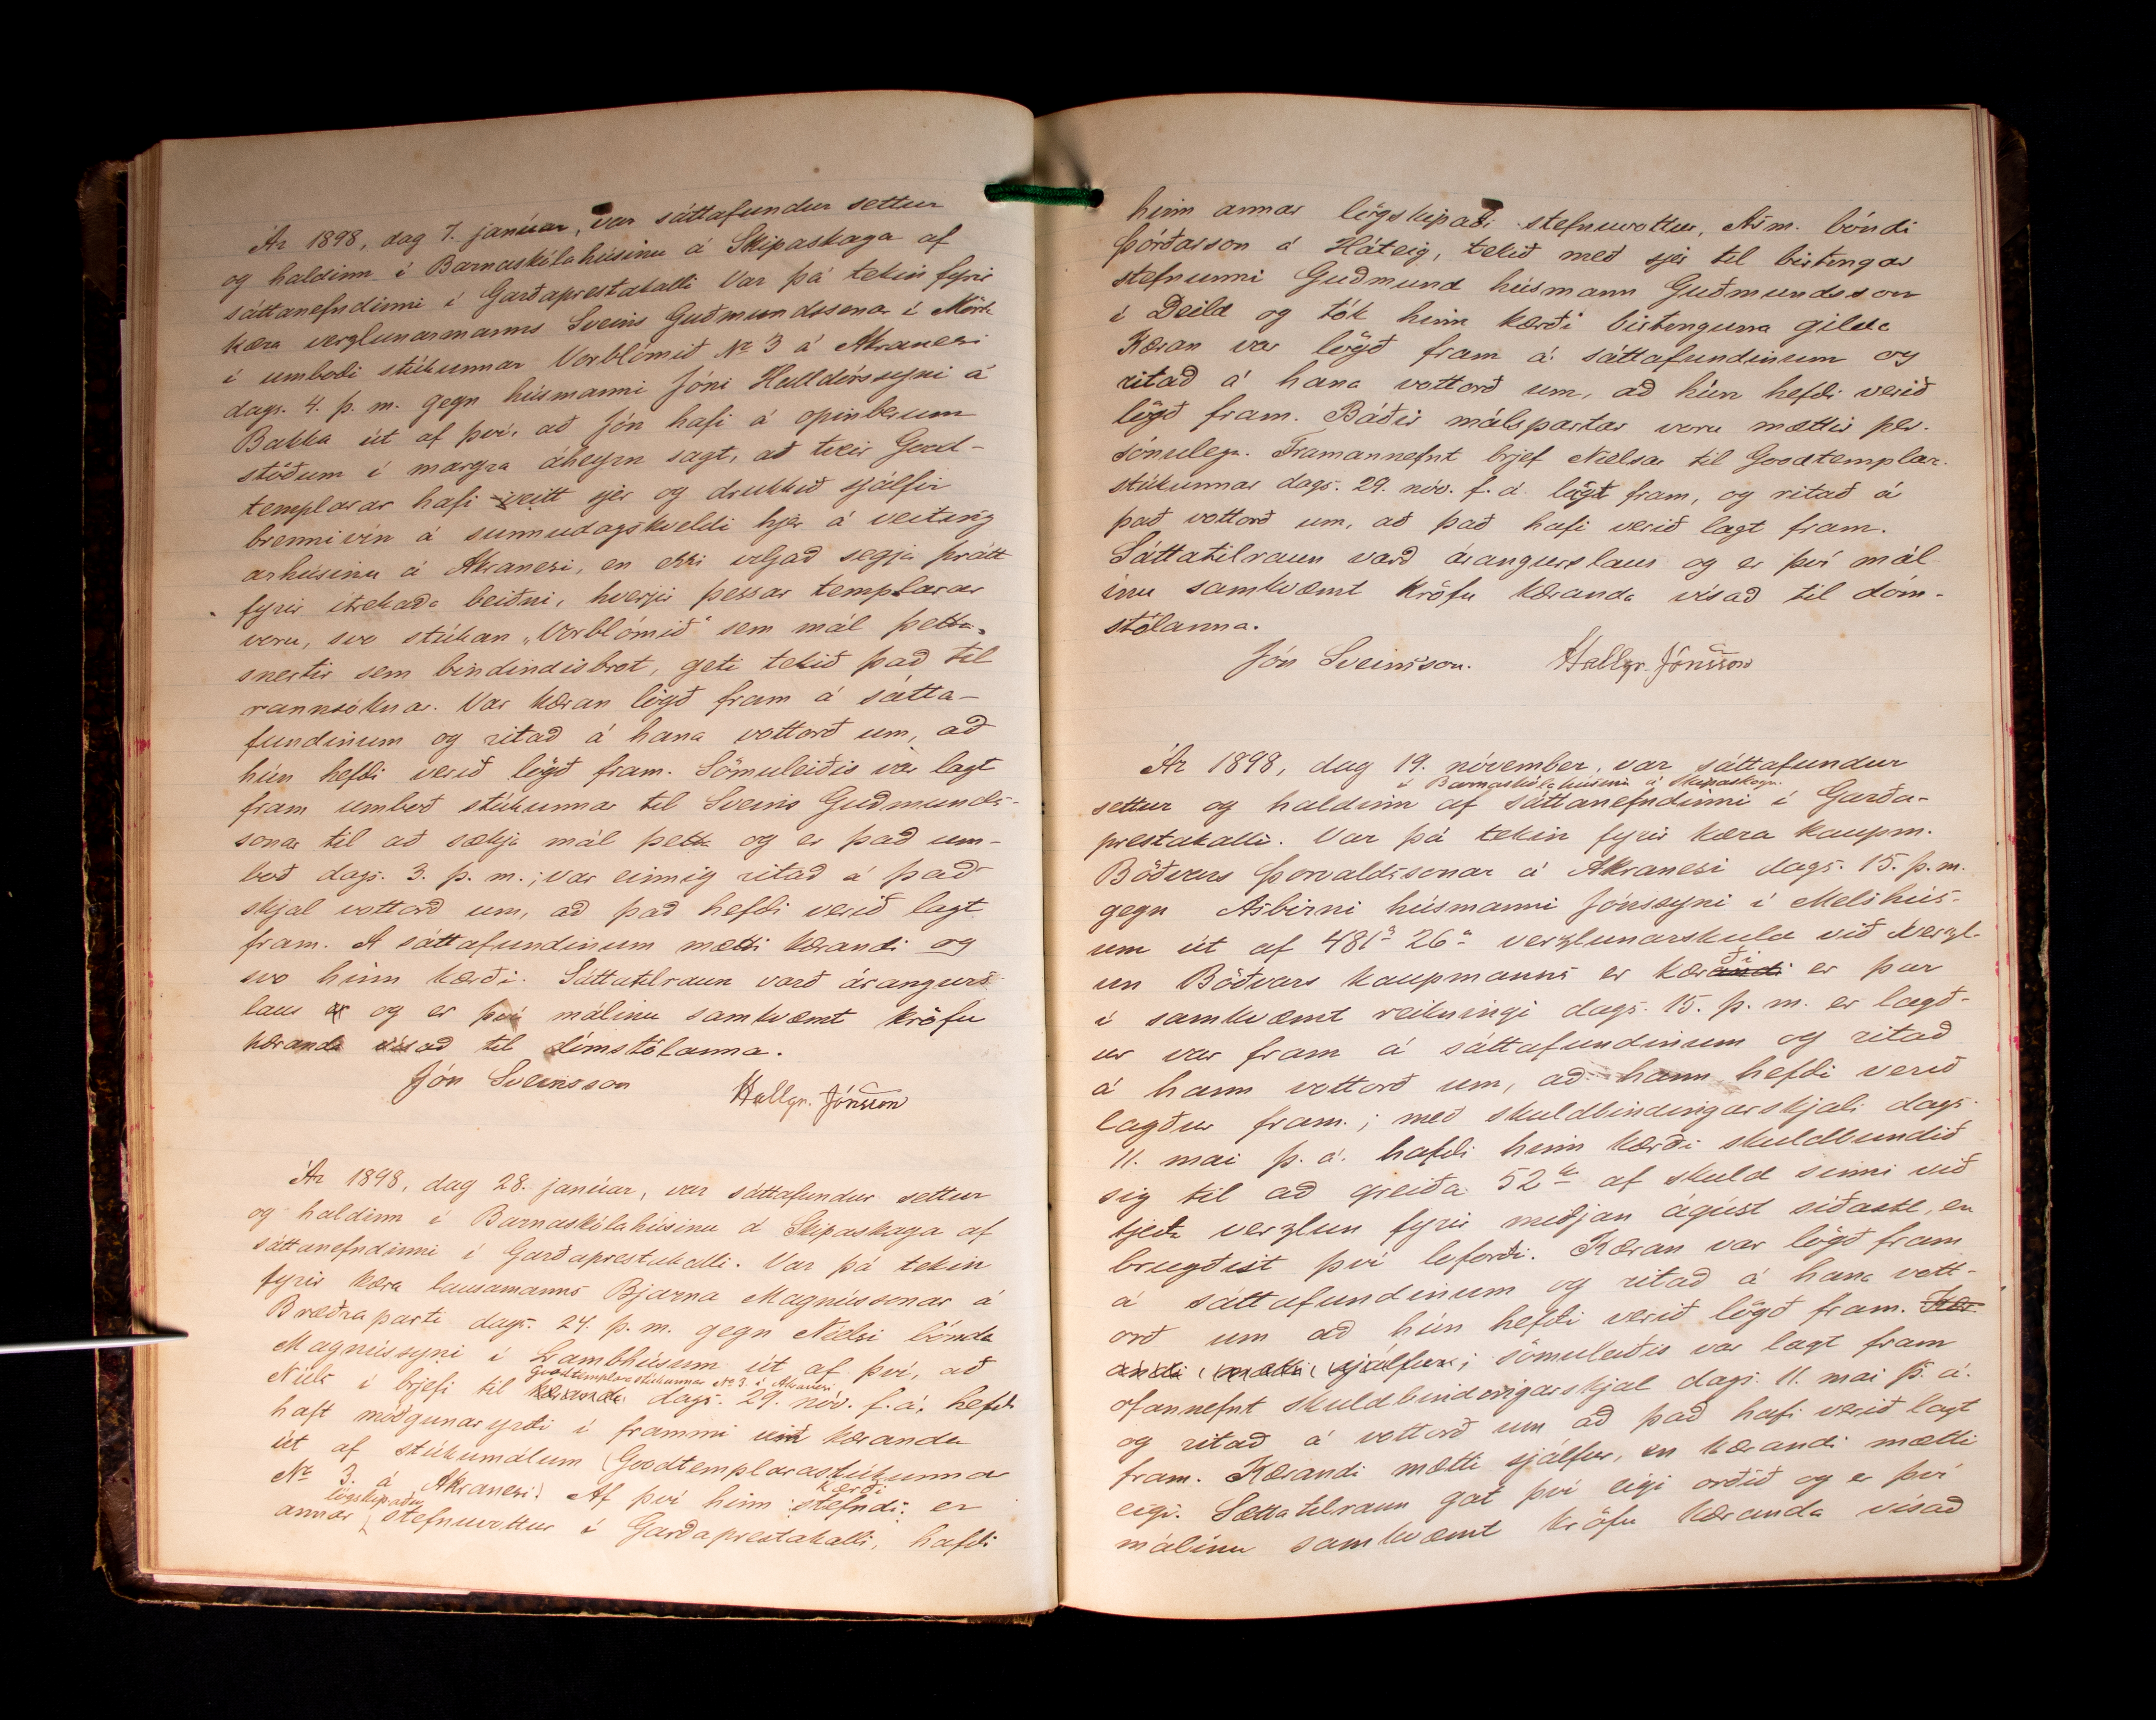 Ár 1898, dag 7. janúar, var sáttafundur settur
og haldinn í Barnaskólahúsinu á Skipaskaga af
sáttanefndinni í Garðaprestakalli Var þá tekin fyrir
kæra verzlunarmanns Sveins Guðmundssonar í Mörk
í umboði stúkunnar Vorblómið No 3 á Akranesi
dags. 4. þ. m. gegn húsmanni Jóni Halldórssyni á
Bakka út af því, að Jón hafi á opinberum
stöðum í margra áheyrn sagt, að tveir Good-
templarar hafi veitt sjer og drukkið sjálfir
brennivín á sunnudagskveldi hjer á veiting
arhúsinu á Akranesi, en ekki viljað segja þrátt
fyrir ítrekaða beiðni, hverjir þessar templarar
veru, svo stúkan „Vorblómið“ sem mál þetta
snertir sem bindindisbrot, geti tekið það til
rannsóknar. Var kæran lögð fram á sátta-
fundinum og ritað á hana vottorð um, að
hún hefði verið lögð fram. Sömuleiðis var lagt
fram umboð stúkunnar til Sveins Guðmunds-
sonar til að sækja mál þetta og er það um-
boð dags. 3. þ. m.; var einnig ritað á það
skjal vottorð um, að það hefði verið lagt
fram. Á sáttafundinum mætti kærandi og
svo hinn kærði. Sáttatilraun varð árangurs
laus og er því málinu samkvæmt kröfu
kæranda vísað til dómstólanna.
Jón Sveinsson Hallgr. Jónsson
Ár 1898, dag 28. janúar, var sáttafundur settur
og haldinn í Barnaskólahúsinu á Skipaskaga af
sáttanefndinni í Garðaprestakalli. Var þá tekin
fyrir kæra lausamanns Bjarna Magnússonar á
Bræðraparti dags. 24. þ. m. gegn Nielsi bónda
Magnússyni í Lambhúsum út af því, að
Goodtemplarastúkunnar No 3. á Akranesi
Niels í brjefi til kæranda dags. 29. nóv. f. á. hefði
haft móðgunaryrði í frammi við kæranda
út af stúkumálum (Goodtemplarastúkunnar
kærði
No 3. á Akranesi). Af því hinn stefndi er
lögskipaður
annar stefnuvottur í Garðaprestakalli, hafði
hinn annar lögskipaði stefnuvottur, Ásm. bóndi
Þórðarson á Háteig, tekið með sjer til birtingar
stefnunni Guðmund húsmann Guðmundsson
í Deild og tók hinn kærði birtinguna gilda
Kæran var lögð fram á sáttafundinum og
ritað á hana vottorð um, að hún hefði verið
lögð fram. Báðir málspartar voru mættir per-
sónulega. Framannefnt brjef Nielsar til Goodtemplar-
stúkunnar dags. 29. nóv. f. á. lagt fram, og ritað á
það vottorð um, að það hafi verið lagt fram.
Sáttatilraun varð árangurslaus og er því mál
inu samkvæmt kröfu kæranda vísað til dóm-
stólanna.
Jón Sveinsson. Hallgr. Jónsson
Ár 1898, dag 19. nóvember, var sáttafundur
í Barnaskólahúsinu á Skipaskaga
settur og haldinn af sáttanefndinni í Garða-
prestakalli. Var þá tekin fyrir kæra kaupm.
Böðvars Þorvaldssonar á Akranesi dags. 15. þ. m.
gegn Ásbirni húsmanni Jónssyni í Melshús-
um út af 481 26 verzlunarskuld við verzl-
ði
un Böðvars kaupmanns er kærandi er þar
í samkvæmt reikningi dags. 15. þ. m. er lagð-
ur var fram á sáttafundinum og ritað
á hann vottorð um, að hann hefði verið
lagður fram.; með skuldbindingarskjali dags.
11. mai þ. á. hafði hinn kærði skuldbundið
sig til að greiða 52 kr af skuld sinni við
tjeða verzlun fyrir miðjan ágúst síðastl., en
brugðist því loforði. Kæran var lögð fram
á sáttafundinum og ritað á hana vott-
orð um að hún hefði verið lögð fram. Kær-
andi mætti sjálfur; sömuleiðis var lagt fram
ofannefnt skuldbindingarskjal dags. 11. mai þ. á.
og ritað á vottorð um að það hafi verið lagt
fram. Kærandi mætti sjálfur, en kærandi mætti
eigi. Sættatilraun gat því eigi orðið og er því
málinu samkvæmt kröfu kæranda vísað